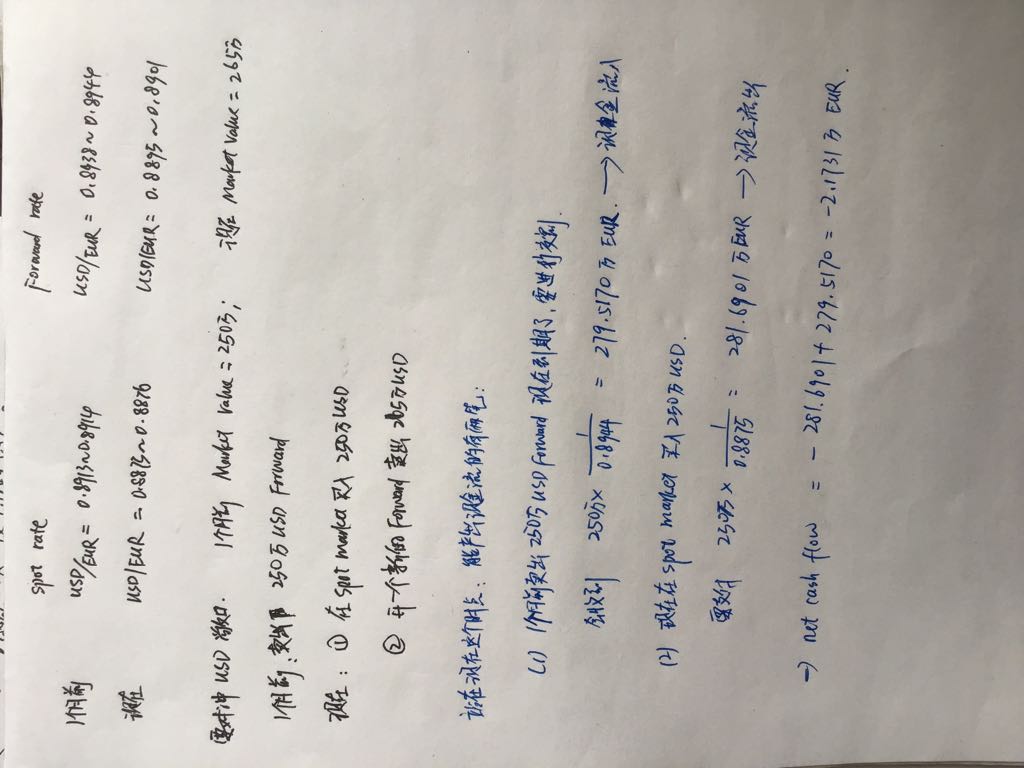 spot rate Forward rate
1个月前 USD/EUR = 0.8913~0.8914 USD/EUR = 0.8938~0.8944
现在 USD/EUR = 0.8875~0.8876 USD/EUR = 0.8895~0.8901
要对冲 USD 敞口. 1个月前 Market value = 250万; 现在 Market value = 265万
1个月前: 250万 USD Forward
现在: ① 在 spot market 买入 250万 USD
② 开一个新的 Forward 卖出 265万 USD
站在现在这个时点: 能产生现金流的有两笔:
(1) 1个月前卖出 250万 USD Forward 现在到期了, 需进行交割.
会收到 250万 × 1/0.8944 = 279.5170 万 EUR. → 现金流入
(2) 现在在 spot market 买入 250万 USD.
要支付 250万 × 1/0.8875 = 281.6901 万 EUR → 现金流出
→ net cash flow = - 281.6901 + 279.5170 = -2.1731 万 EUR.